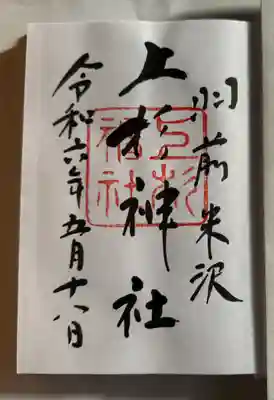 羽前米沢
上杉神社
上杉神社
令和六年五月十八日